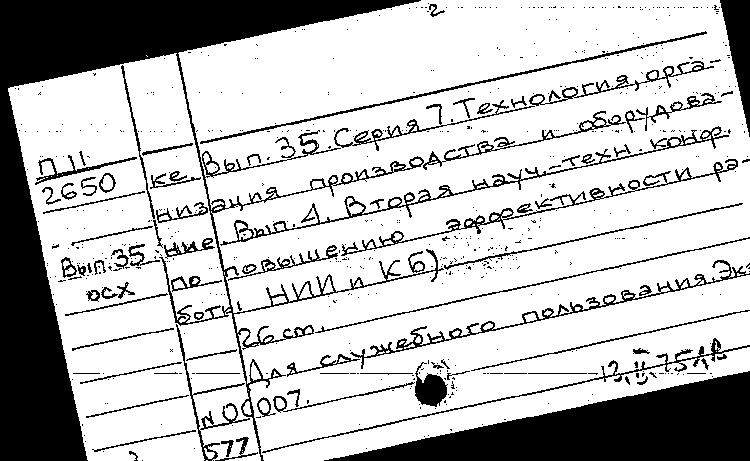 2
П 11
2650
Вып. 35
осх
ке. Вып. 35. Серия 7. Технология, орга-
низация производства и оборудова-
ние. Вып. 4. Вторая науч.-техн. конф.
по повышению эффективности ра-
боты НИИ и КБ)
26 cm.
Для служебного пользования. Экз
N 00007.
577